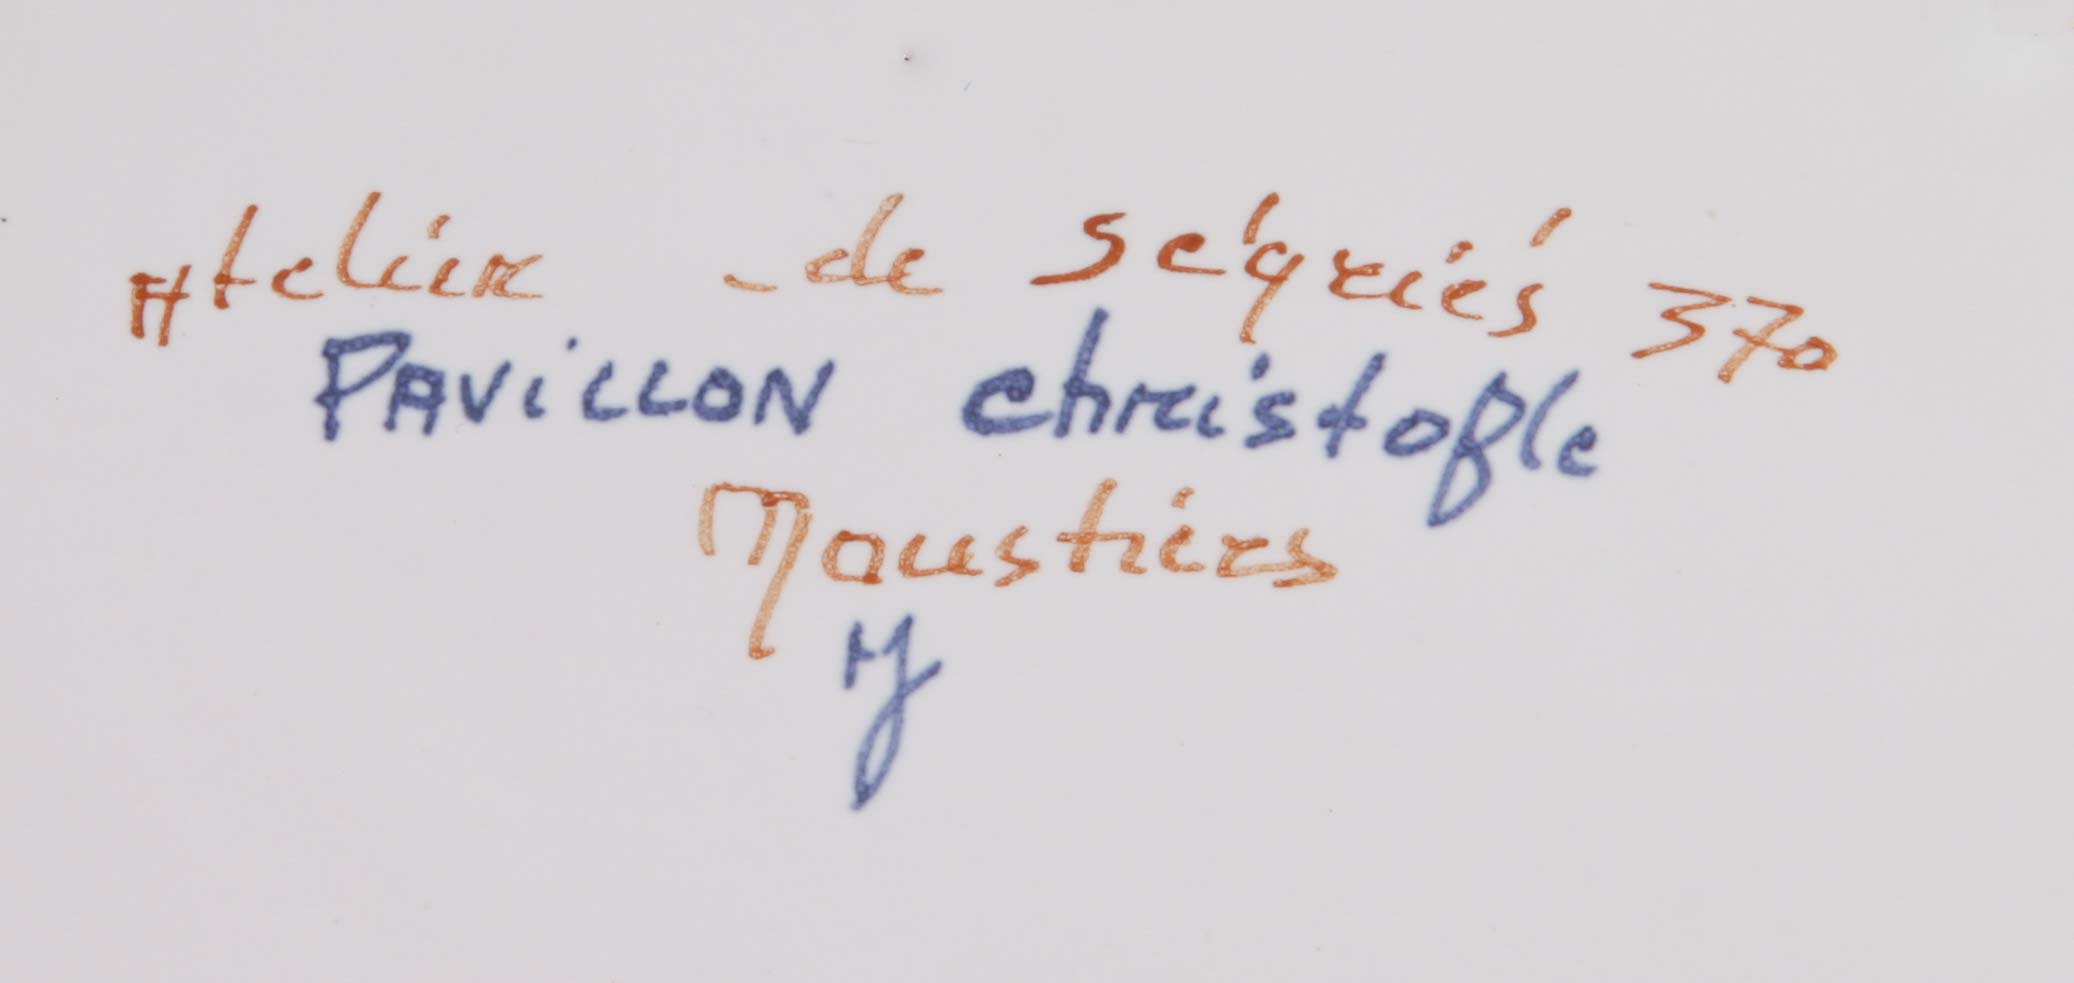 Atelier - de Ségriés 370
PAViLLON christofle
Moustiers